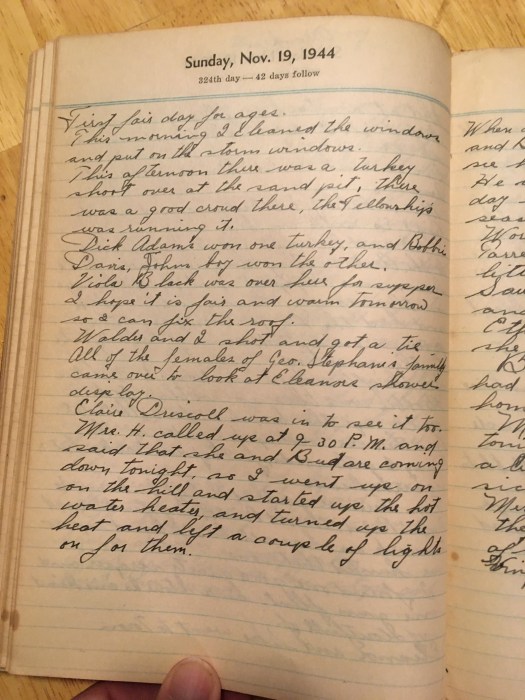 Sunday, Nov. 19, 1944
324th day — 42 days follow
First fair day for ages.
This morning I cleaned the windows
and put on the storm windows.
This afternoon there was a turkey
shoot over at the sand pit, there
was a good croud there, the Fellowship's
was running it.
Dick Adams won one turkey, and Bobbie
Davis, Johns boy won the other.
Viola Black was over here for supper
I hope it is fair and warm tomorrow
so I can fix the roof.
Waldo and I shot and got a tie
All of the females of Geo. Stephanis family
came over to look at Eleanors shower
display.
Claire Driscoll was in to see it too.
Mrs. H. called up at 9 30 P.M. and
said that she and Bud are coming
down tonight, so I went up on
on the hill and started up the hot
water heater, and turned up the
heat and left a couple of lights
on for them.
When
and
see
He
day
seas